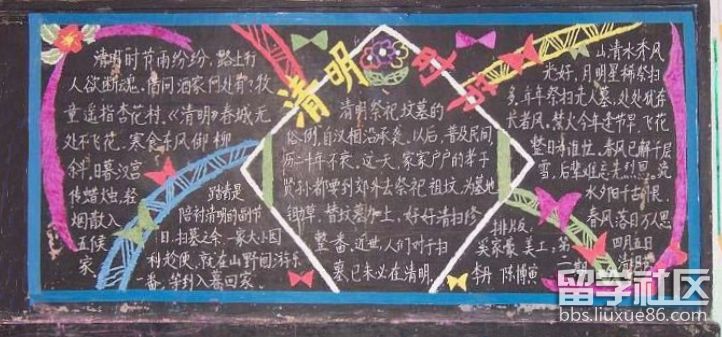 清明
清明时节雨纷纷，路上行
人欲断魂，借问酒家何处有？牧
童遥指杏花村。《清明》春城无
处不飞花，寒食东风御柳
斜，日暮汉宫
传蜡烛，轻
烟散入
五侯
家
踏青是
陪衬清明的副节
日，扫墓之余，一家大小围
利趁便，就在山野间游乐
一番，等到入暮回家。
清明祭祀坟墓的
俗例，自汉相沿承袭，以后，普及民间，
历二千年不衰，这一天，家家户户的孝子
贤孙都要到郊外去祭祀祖坟，为墓地
锄草，替坟墓加土，好好清扫修
整一番，近世，人们对于扫
墓，已未必在清明。
山清水秀风
光好，月明星稀祭扫
多，年年祭扫先人墓，处处犹存
长者风，禁火今年逢节早，飞花
整日
春风已解千层
雪，后辈难忘先烈恩。
水夕阳千古恨，
春风落日万人思
四月五日
第
二期
排版：
美工，